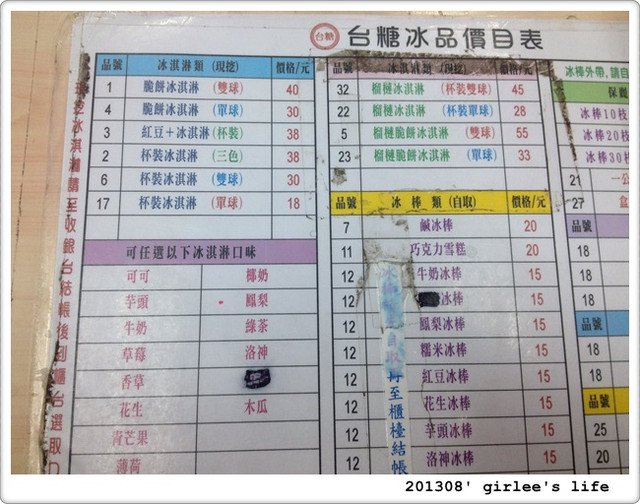 台糖 台糖冰品價目表
品號 冰淇淋類 (現挖) 價格/元
1 脆餅冰淇淋 (雙球) 40
4 脆餅冰淇淋 (單球) 30
3 紅豆+冰淇淋 (杯裝) 38
2 杯裝冰淇淋 (三色) 38
6 杯裝冰淇淋 (雙球) 30
17 杯裝冰淇淋 (單球) 18
可任選以下冰淇淋口味
可可 椰奶
芋頭 鳳梨
牛奶 綠茶
草莓 洛神
香草
花生 木瓜
青芒果
薄荷
品號 冰淇淋類 (現挖) 價格/元
32 榴槤冰淇淋 (杯裝雙球) 45
22 榴槤冰淇淋 (杯裝單球) 28
5 榴槤脆餅冰淇淋 (雙球) 55
23 榴槤脆餅冰淇淋 (單球) 33
品號 冰棒類 (自取) 價格/元
7 鹹冰棒 20
11 巧克力雪糕 20
12 牛奶冰棒 15
12 冰棒 15
12 鳳梨冰棒 15
12 糯米冰棒 15
12 紅豆冰棒 15
12 花生冰棒 15
12 芋頭冰棒 15
12 洛神冰棒 15
冰棒外帶,請自
保麗
冰棒10枝
冰棒20枝
冰棒30枝
21 一公
27 盒
品號
18
18
品號
18
18
品號
25
20
冰淇淋請至收銀台結帳後到櫃台選取口
自取
再至櫃檯結帳
201308' girlee's life